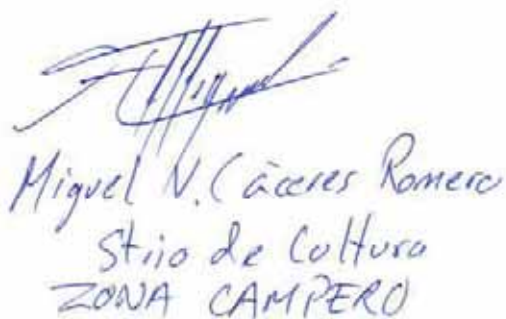 Miguel N. Cáceres Romero
Strio de Cultura
ZONA CAMPERO